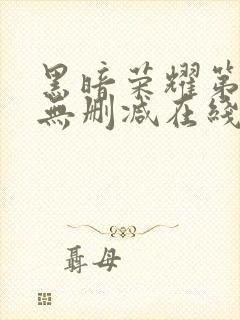 黑暗荣耀第
無删减在綫
聶母